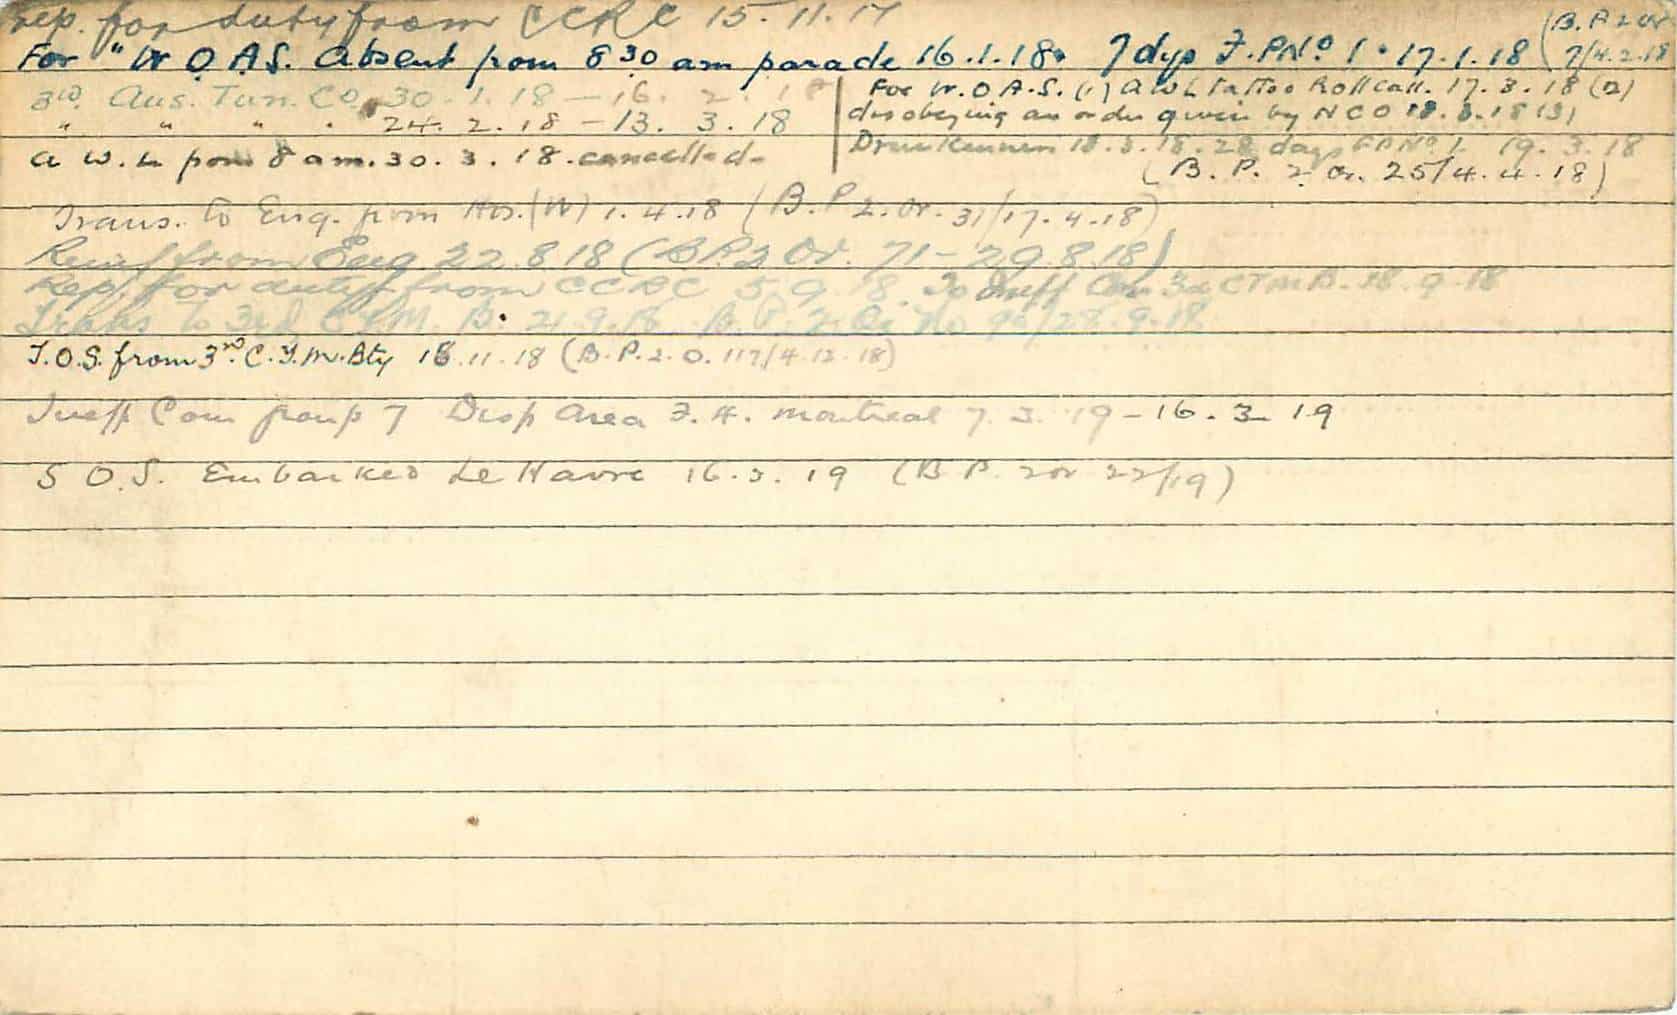 rep. for duty from CCRC 15.11.17
For "W.O.A.S. Absent from 8 30 am parade 16.1.18. 7 dys F.P No. 1. 17.1.18 (B.P 2 Or 7/4.2.18
3rd. Aus. Tun. Co. 30.1.18 - 16. 2. 18
" " " " 24. 2. 18 - 13. 3. 18
A W.L from 8 am. 30. 3. 18. cancelled-
For W.O.A.S. (1) A W L Tattoo Roll Call. 17. 3. 18 (2)
disobeying an order given by NCO 18. 3. 18 (3)
Drunkenness 18. 3. 18. 28 days FP No. 1. 19. 3. 18
(B. P. 2 Or. 25/4. 4. 18)
Trans. to Eng. from Hos. (W) 1. 4. 18 (B.P 2. Or. 31/17. 4. 18)
from Eng 22.8.18 (B.P.2 Or. 71-29.8.18)
Rep. for duty from CCRC 5 9 18. To Ineff Com 3d CTMB. 18. 9. 18
Trans to 3rd C.T.M. B. 21.9.18 B.P. 2 Or No /28.9.18
T.O.S. from 3rd. C.T.M. Bty 16.11.18 (B.P.2.O. 117/4.12.18)
Ineff Com group 7 Disp Area F. H. Montreal 7. 3. 19 - 16. 3. 19
S O.S. Embarked Le Havre 16. 3. 19 (B P. 2 or 22/19)